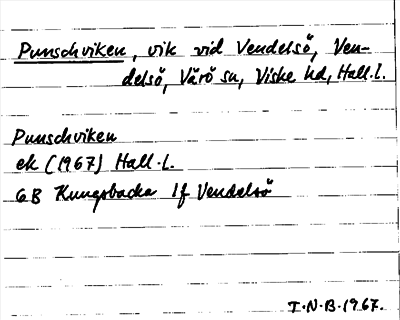 Punschviken, vik vid Vendelsö, Ven-
delsö, Värö sn, Viske hd, Hall.l.
Punschviken
ek (1967) Hall.l.
6B Kungsbacka 1f Vendelsö
I.N.B.1967.